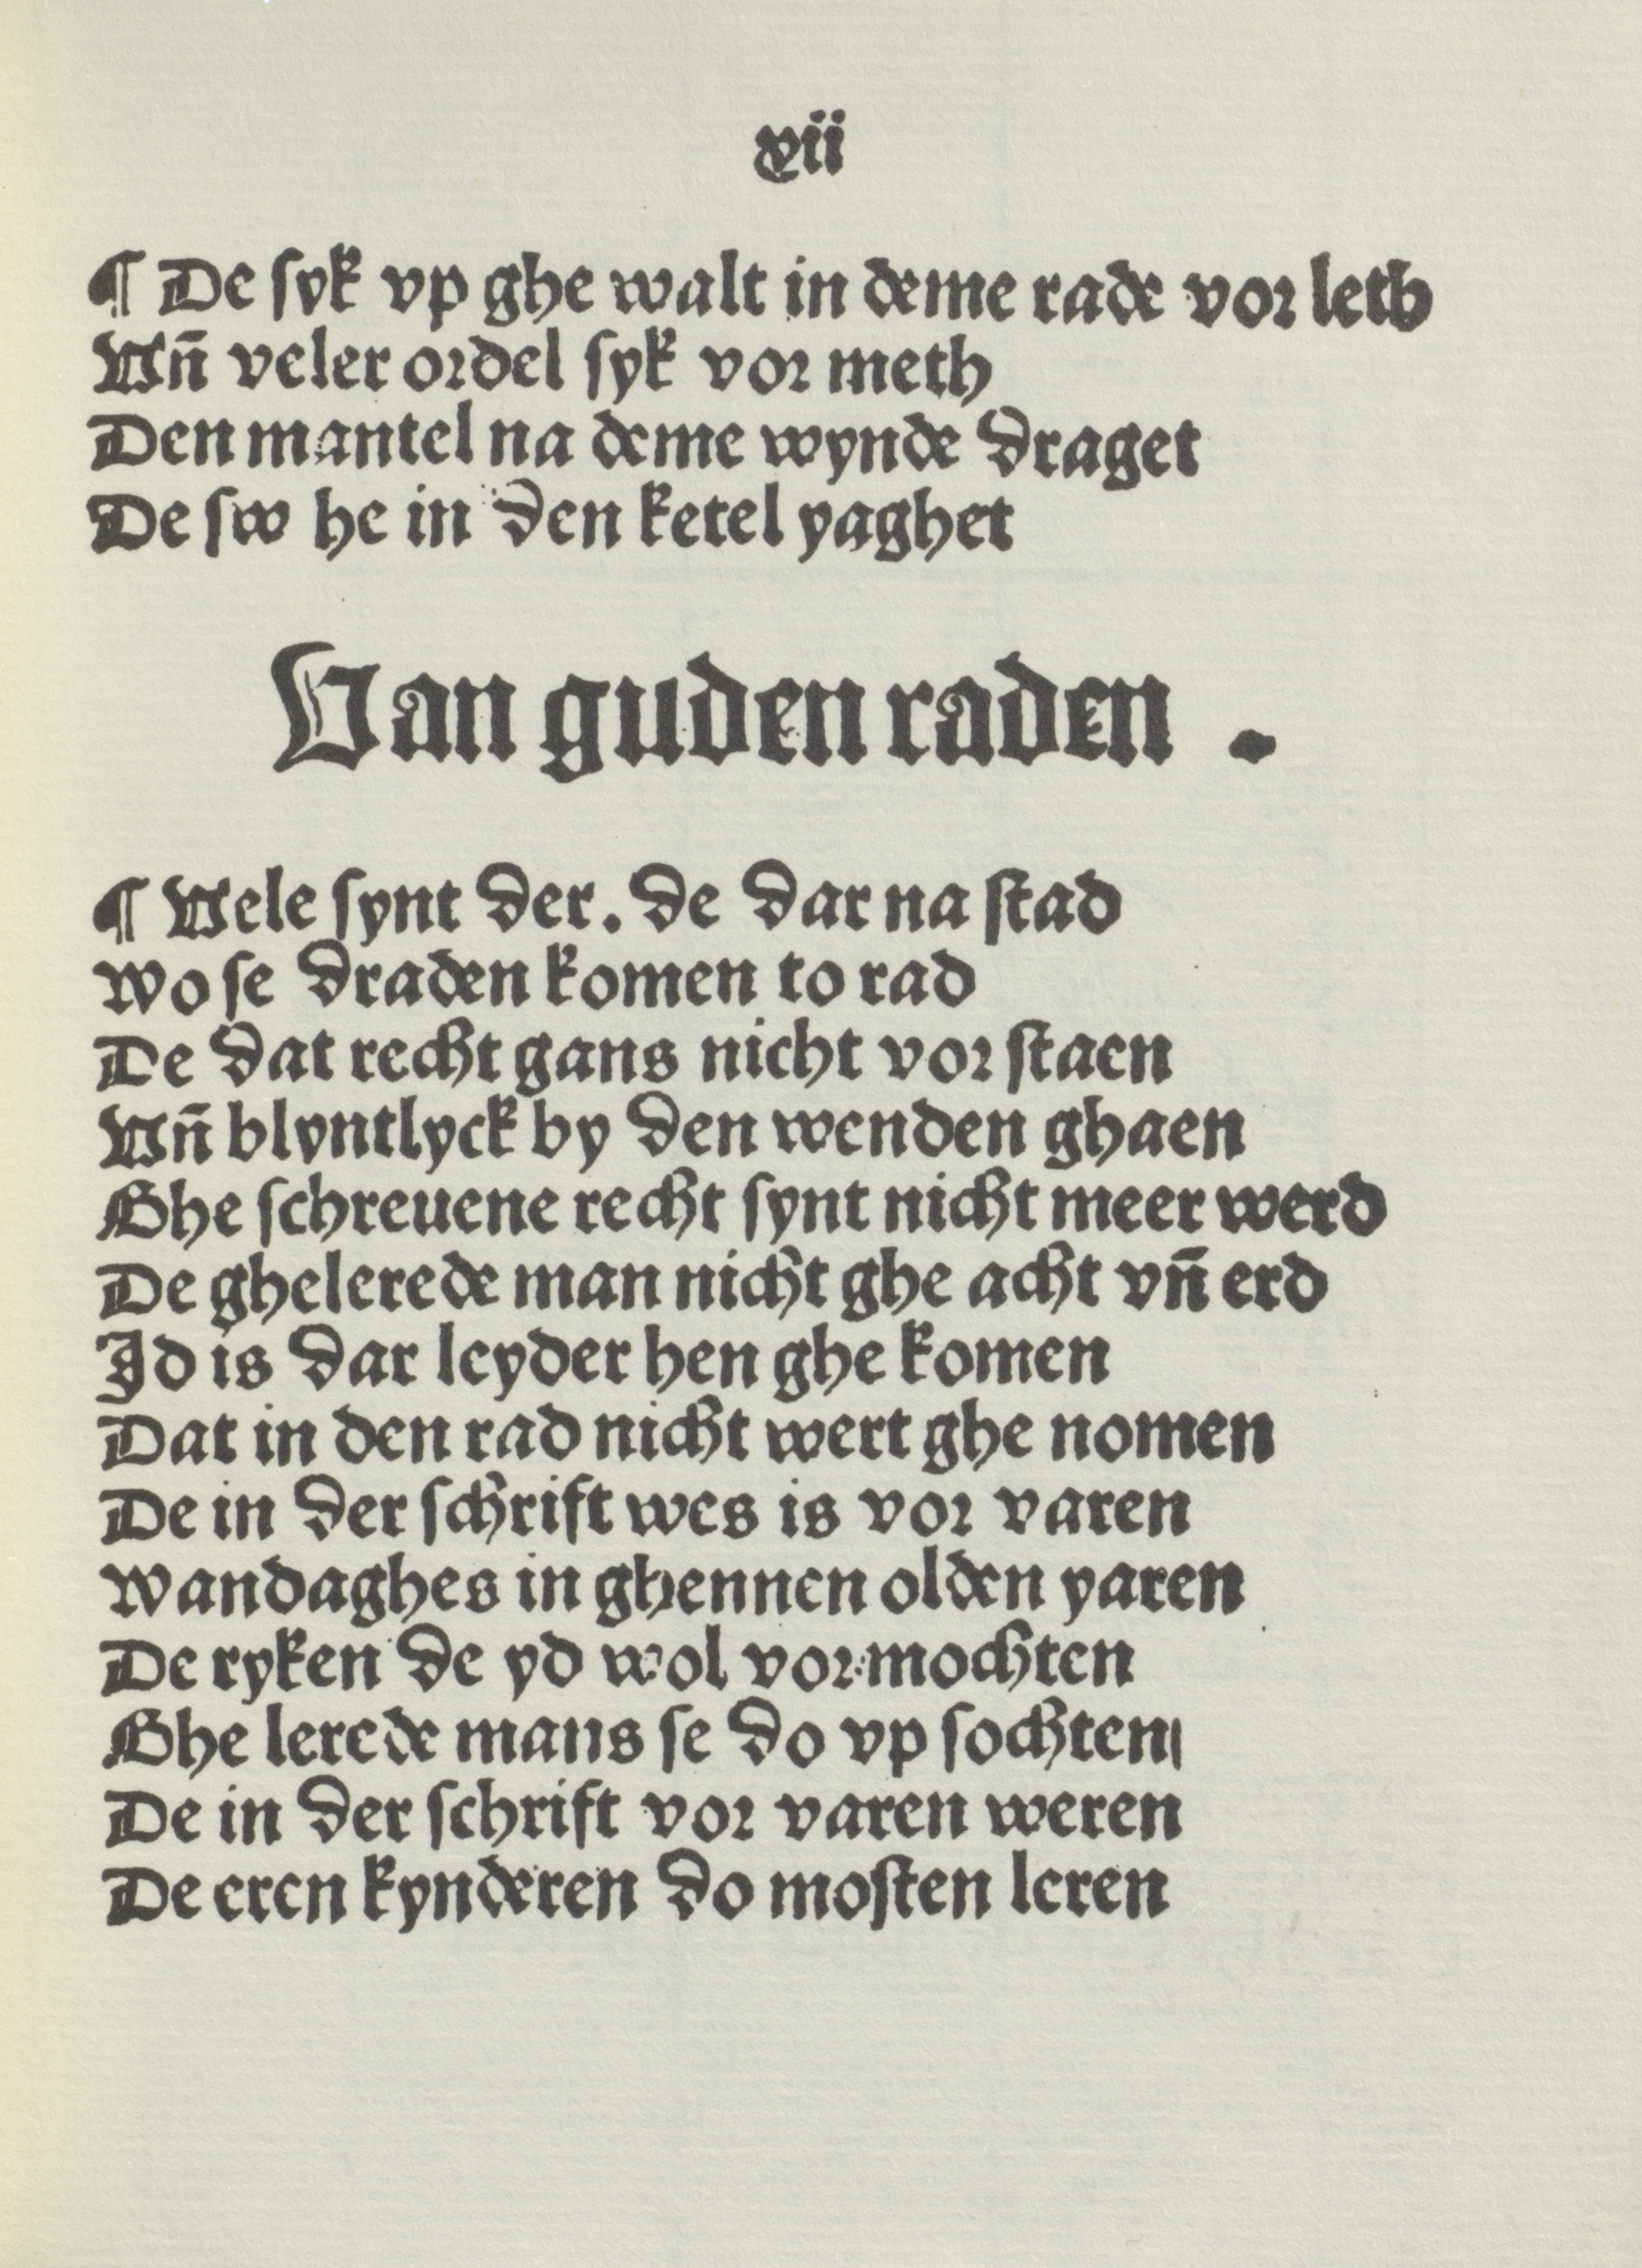 xvii
¶ De syk vp ghe walt in deme rade vor leth
Vñ veler ordel syk vor meth
Den mantel na deme wynde draget
De sw he in den ketel yaghet
Van guden raden .
¶ Vele synt der. de dar na stad
wo se draden komen to rad
De dat recht gans nicht vor staen
Vñ blyntlyck by den wenden ghaen
Ghe schreuene recht synt nicht meer werd
De ghelerede man nicht ghe acht vñ erd
Id is dar leyder hen ghe komen
Dat in den rad nicht wert ghe nomen
De in der schrift wes is vor varen
wandaghes in ghennen olden yaren
De ryken de yd wol vormochten
Ghe lerede mans se do vp sochten
De in der schrift vor varen weren
De eren kynderen do mosten leren